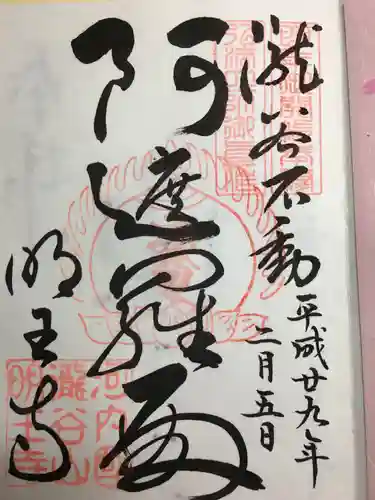 瀧谷不動
平成廿九年
二月五日
阿遮羅
明王寺
河内國
瀧谷山
明王寺